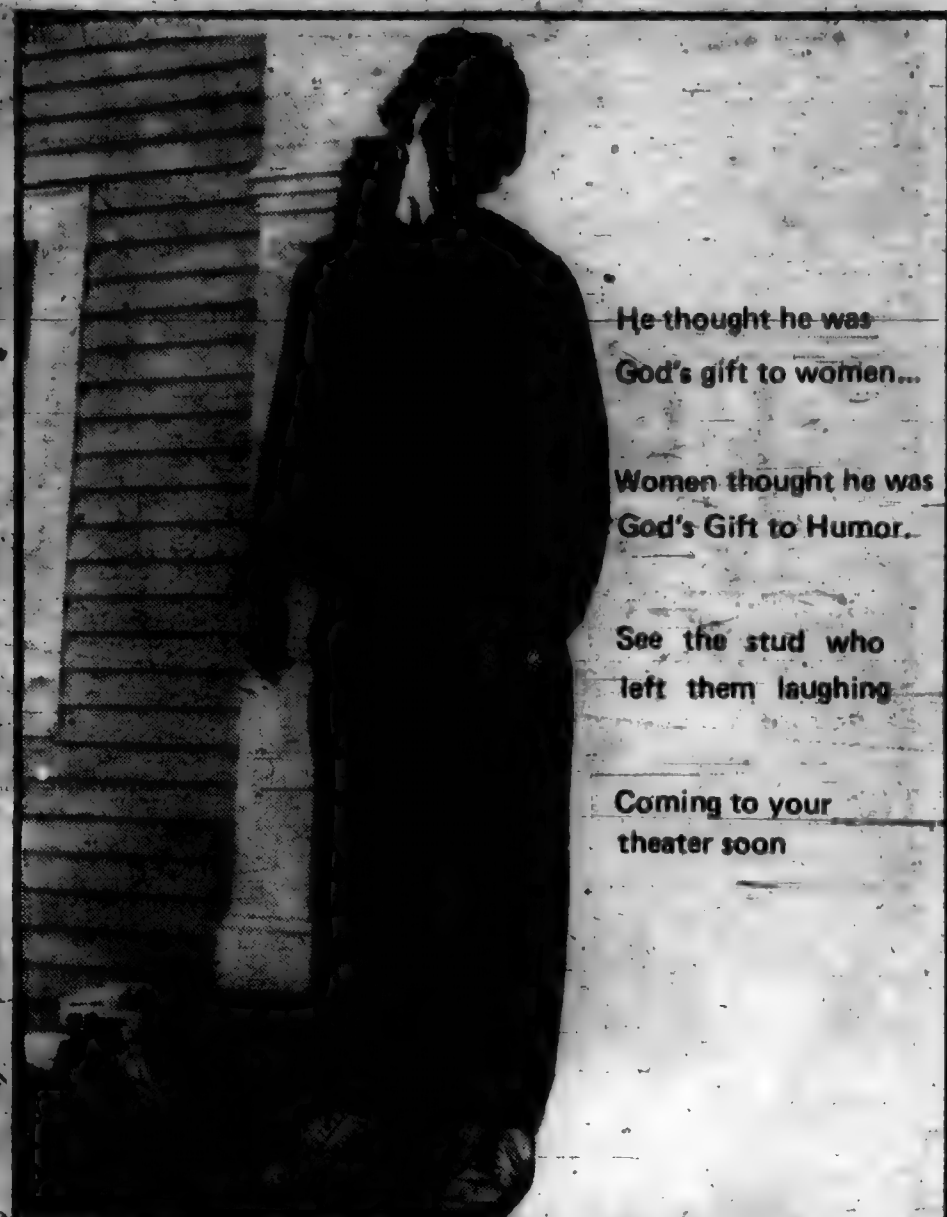 He thought he was
God's gift to women...
Women thought he was
God's Gift to Humor.
See the stud who
left them laughing
Coming to your
theater soon